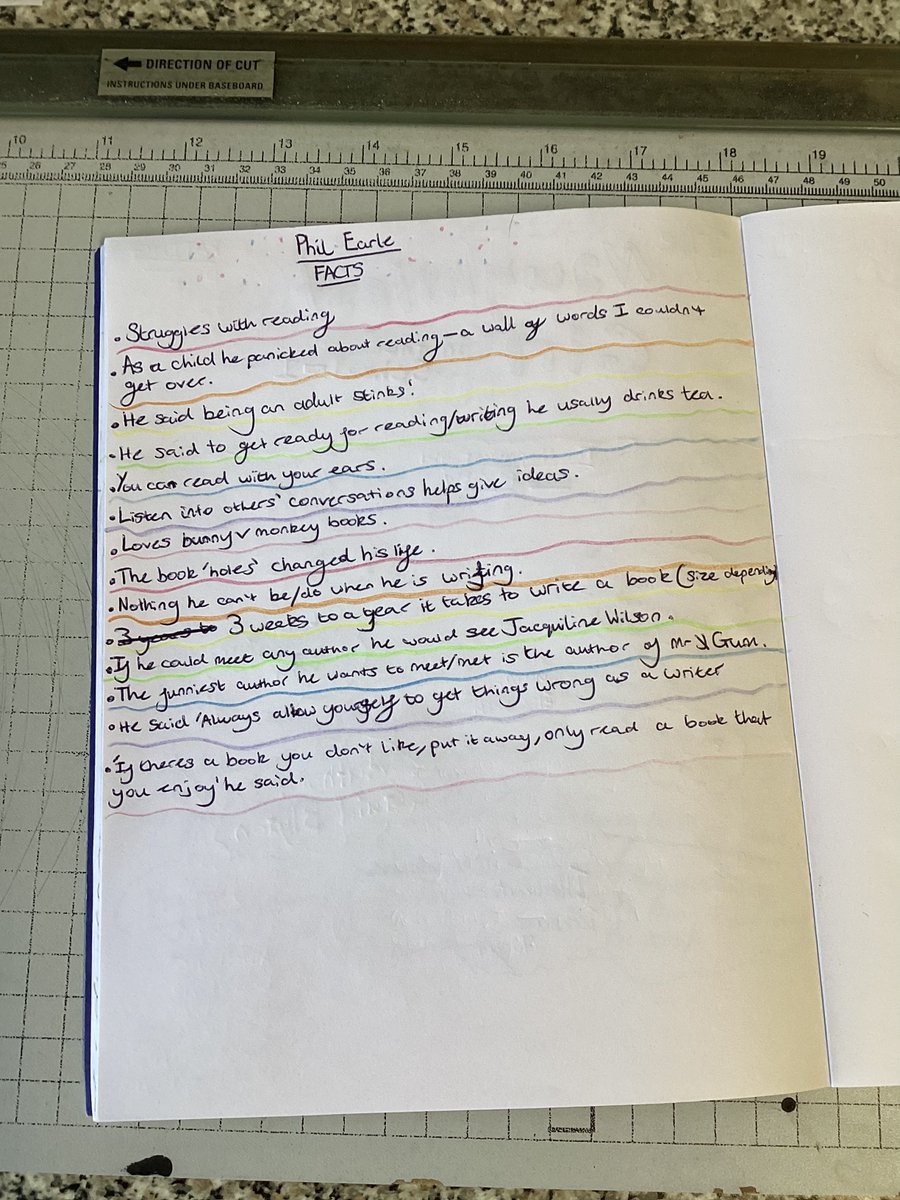 DIRECTION OF CUT
INSTRUCTIONS UNDER BASEBOARD
10 11 12 13 14 15 16 17 18 19
25 26 27 28 29 30 31 32 33 34 35 36 37 38 39 40 41 42 43 44 45 46 47 48 49 50
Phil Earle
FACTS
• Struggles with reading
• As a child he panicked about reading – a wall of words I couldn't
get over.
• He said being an adult stinks!
• He said to get ready for reading/writing he usally drinks tea.
• You can read with your ears.
• Listen into others' conversations helps give ideas.
• Loves bunny v monkey books.
• The book 'holes' changed his life.
• Nothing he can't be/do when he is writing.
• 3 years to 3 weeks to a year it takes to write a book (size depending)
• If he could meet any author he would see Jacquiline Wilson.
• The funniest author he wants to meet/met is the author of Mr Gum.
• He said 'Always allow yourself to get things wrong as a writer
• 'If theres a book you don't like, put it away, only read a book that
you enjoy' he said.